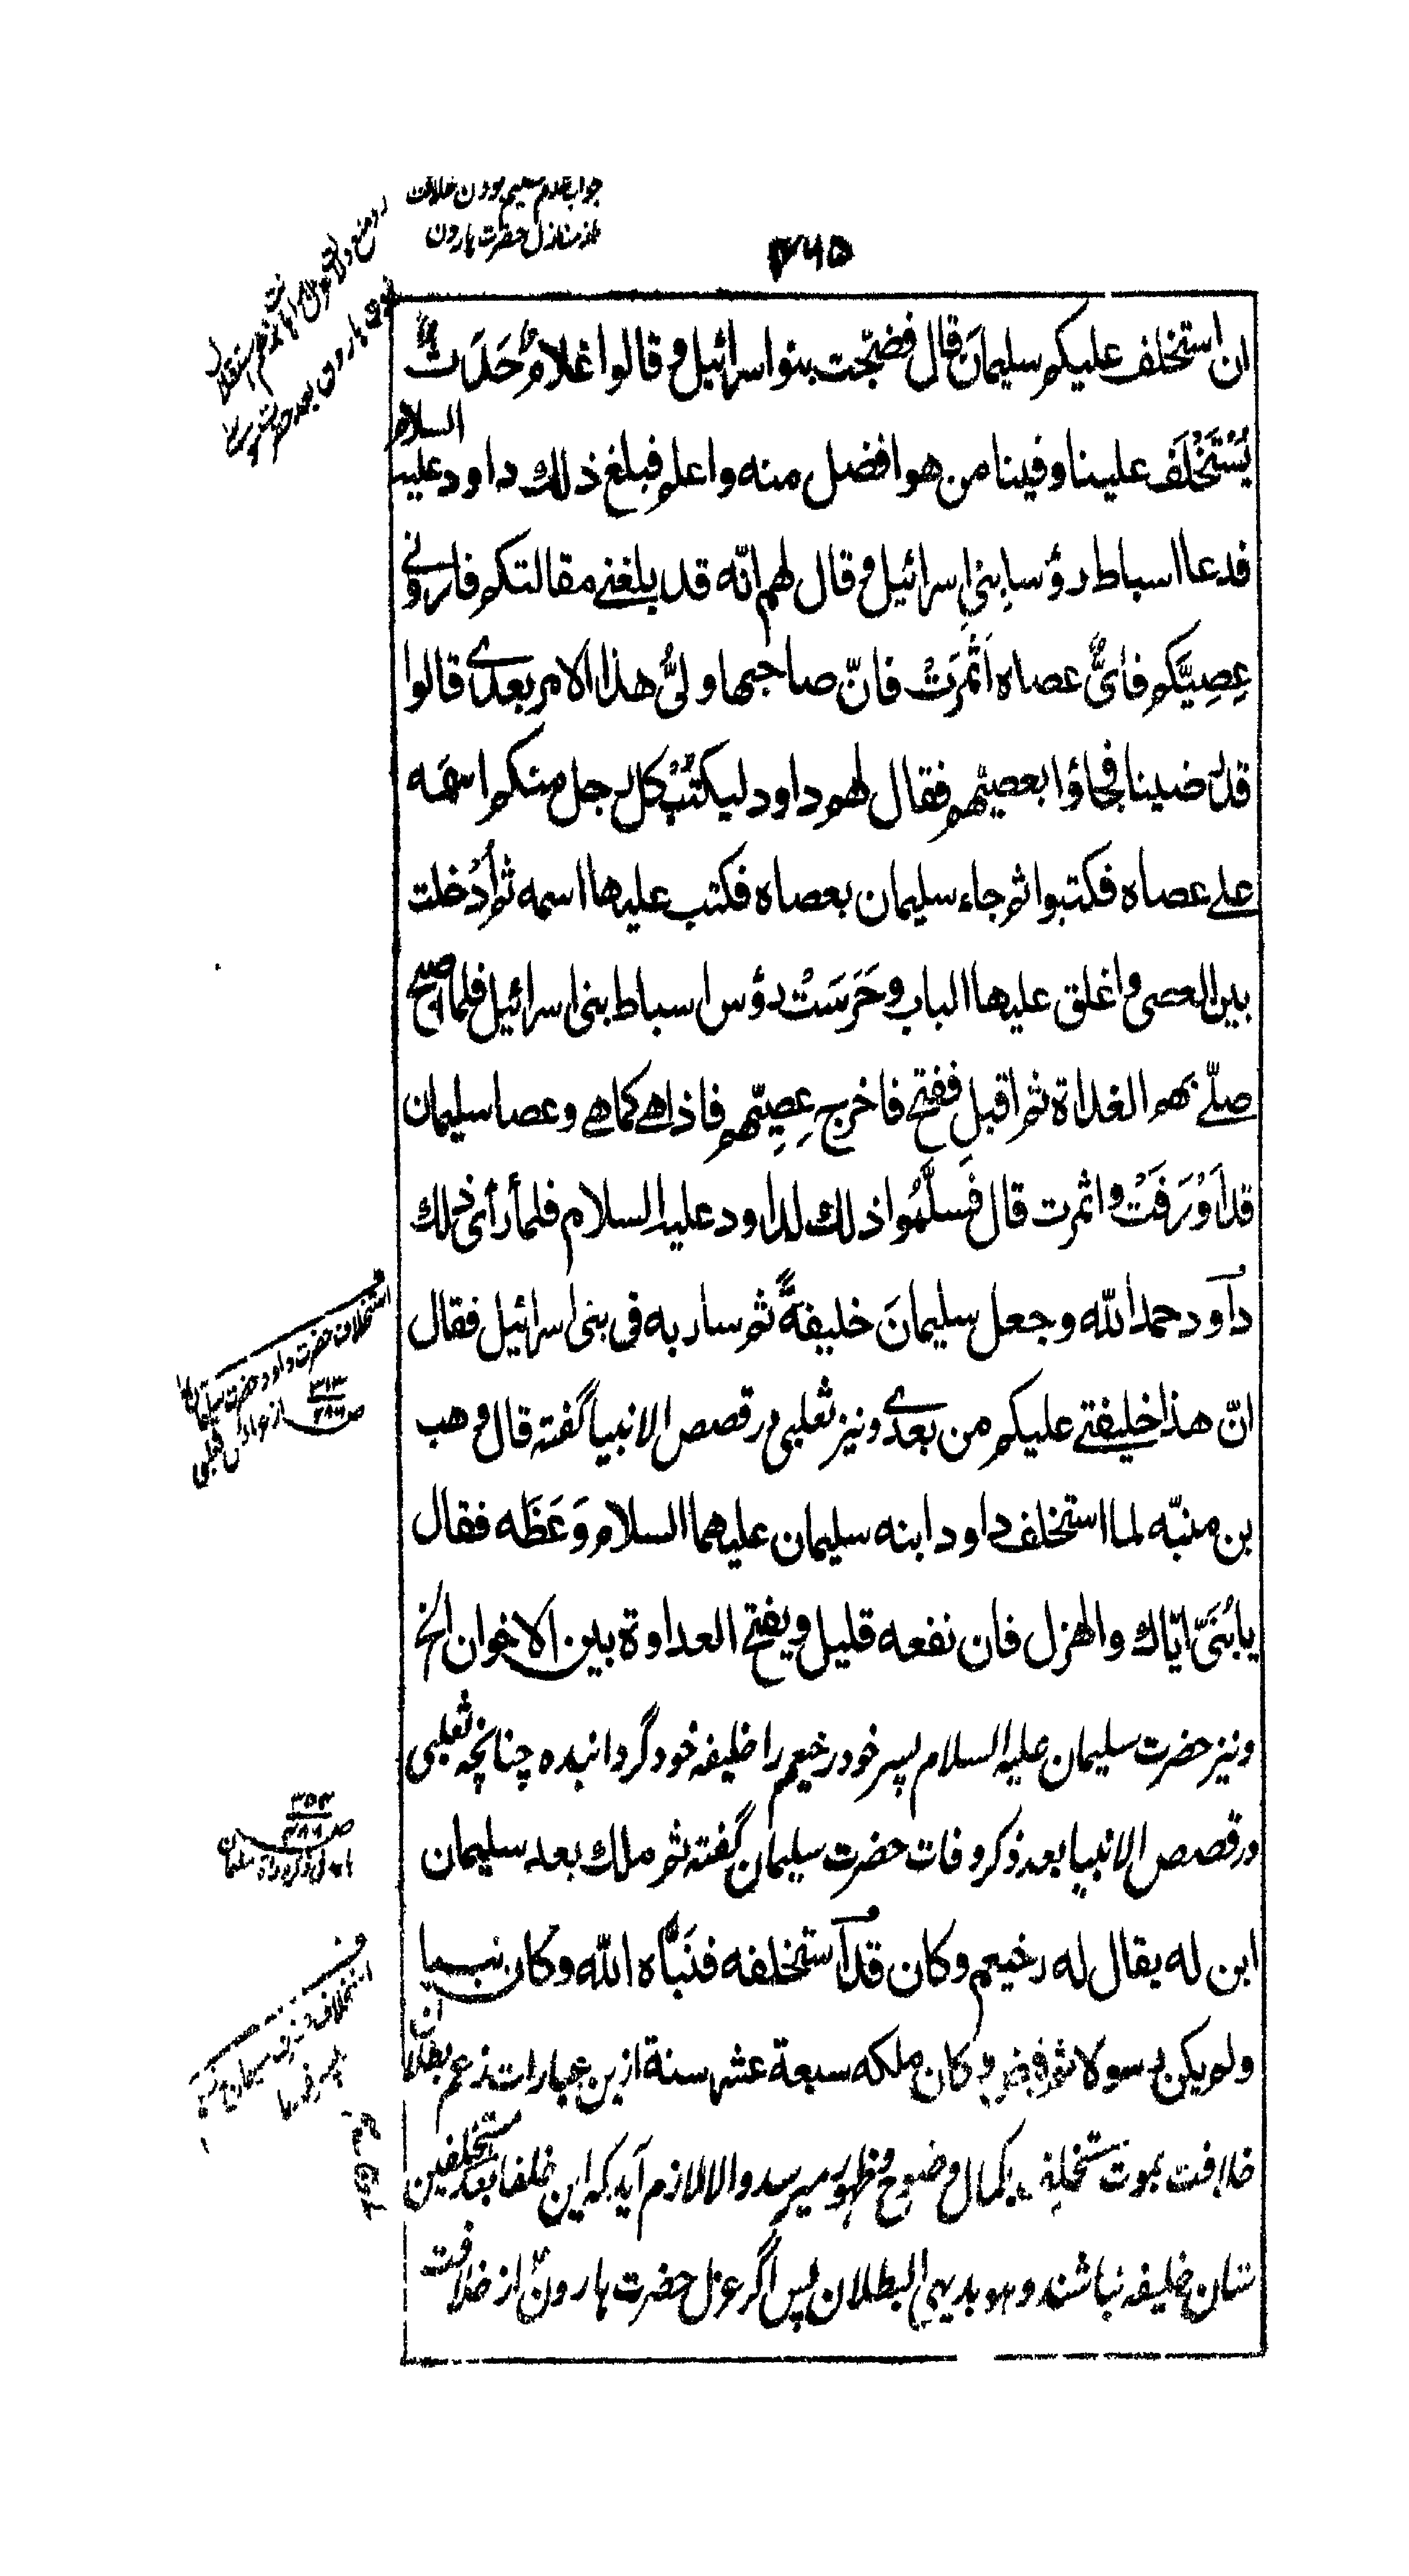 جواب عدم تسلیم بودن خلافت
از منازل حضرت هارون
۷۶۵
ان استخلف علیکم سلیمانَ قال فضجّت بنو اسرائیل و قالوا غلامٌ حَدَثٌ
یُسْتَخْلَف علینا و فینا من هو افضل منه و اعلم فبلغ ذلك داود علیه السلام
فدعا اسباط رؤساِ بنیِ اسرائیل و قال لهم انّه قد بلغنے مقالتکم فارونی
عِصِیّکم فایُّ عصاه اَثْمَرَتْ فانّ صاحبها ولیُّ هذا الامر بعدی قالوا
قد رضینا فجاؤا بعصیّهم فقال لهم داود لیکتُبْ کل رجل منکم اسمَه
علے عصاه فکتبوا ثم جاء سلیمان بعصاه فکتب علیها اسمه ثم اُدْخلت
بین العصی و اغلق علیها الباب و حَرَسَتْ رؤس اسباط بنی اسرائیل فلما اصبح
صلّے بهم الغداة ثم اقبل ففتح فاخرج عِصِیّهم فاذا هے کما هے و عصا سلیمان
قد اَوْرَقَتْ و اثمرت قال فَسَلَّمُوا ذلك لداود علیه السلام فلما رأی ذلك
داود حمد الله و جعل سلیمانَ خلیفةً ثم سار به فی بنی اسرائیل فقال
انّ هذا خلیفتے علیکم من بعدی و نیز ثعلبی در قصص الانبیا گفته قال وهب
بن منبّه لما استخلف داود ابنه سلیمان علیهما السلام وَعَظَه فقال
یا بُنَیّ ایّاك و الهزل فان نفعه قلیل و یفتح العداوة بین الاخوان الخ
و نیز حضرت سلیمان علیه السلام پسر خود رخیعم را خلیفه خود گردانیده چنانچه ثعلبی
در قصص الانبیا بعد ذکر وفات حضرت سلیمان گفته ثم ملك بعد سلیمان
ابن له یقال له رخیعم و کان قد استخلفه فنَبَّاَه الله و کان نبیا
و لم یکن رسولا ثم قبض و کان ملکه سبعة عشر سنة ازین عبارات زعم بطلان
خلافت بموت مستخلِف بکمال وضوح و ظهور میرسد و الا لازم آید که این خلفا بعد مستخلفین
شان خلیفه نباشند و هو بدیهی البطلان پس اگر عزل حضرت هارون از خلافت
استخلاف حضرت داود حضرت سلیمان را
ص ۳۱۳ / ۳۸۶
ص ۳۵۴ / ۳۸۶